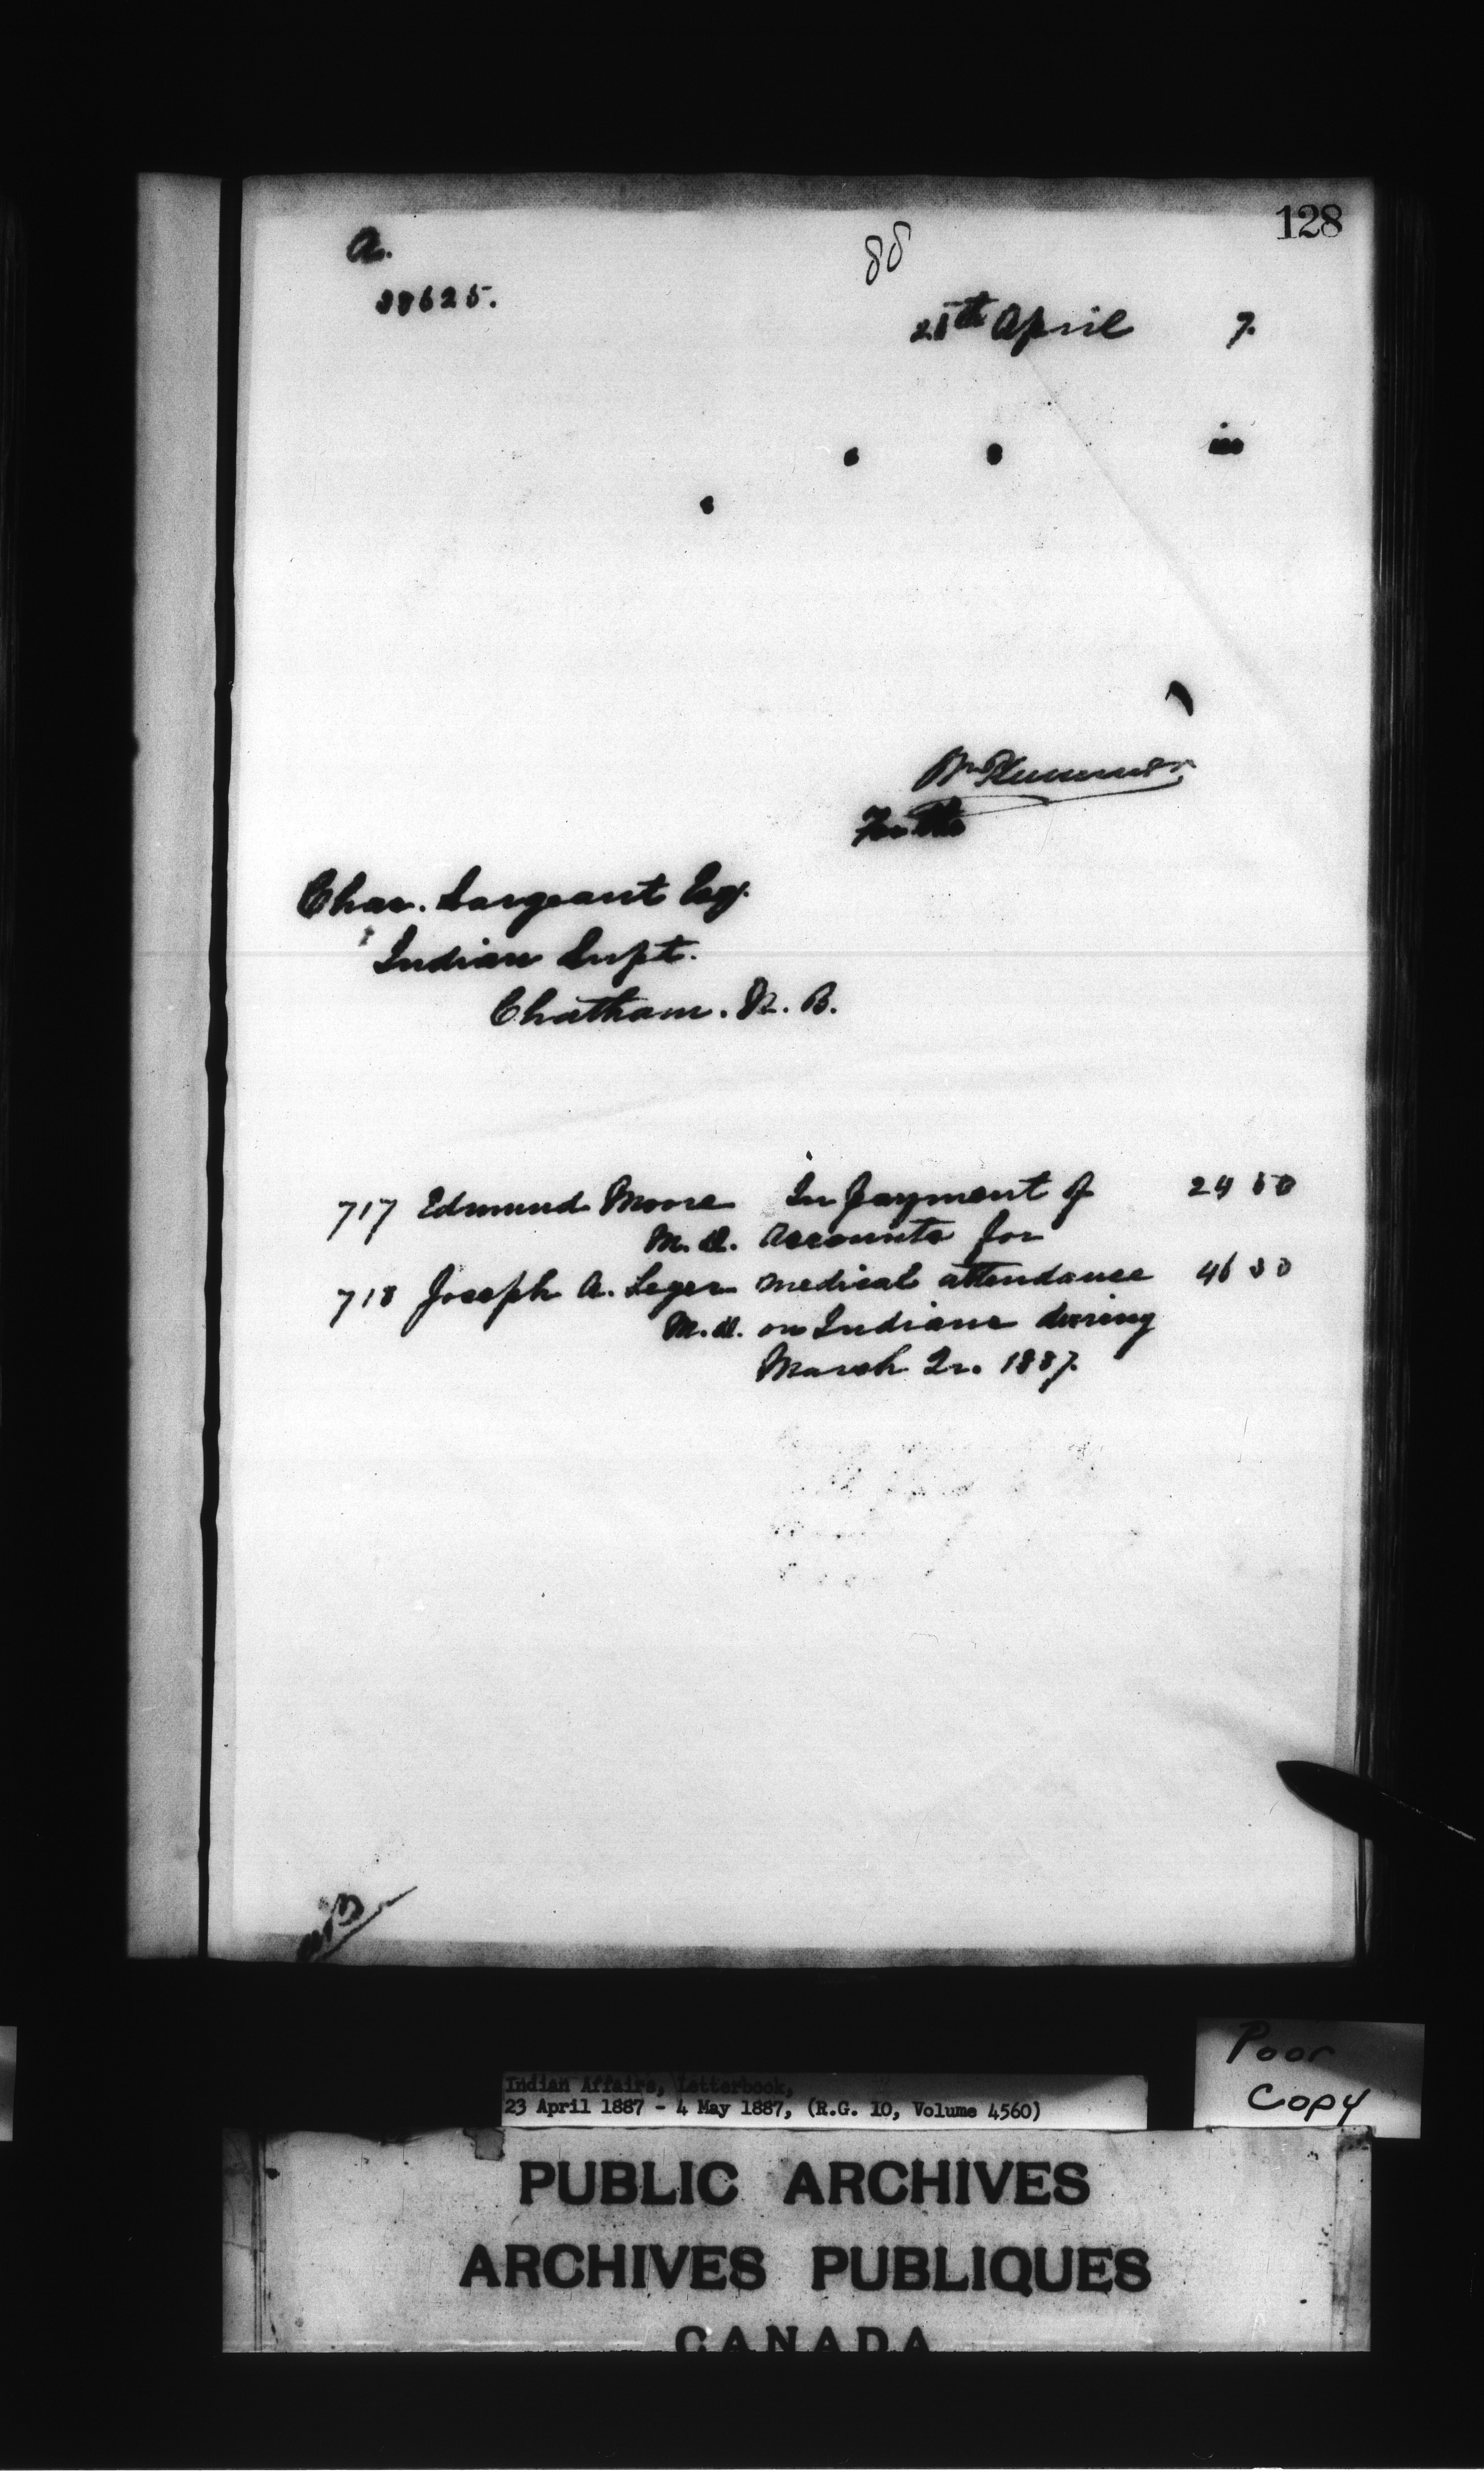 128
a.
88
38625.
25th April 7.
Wm Plummer
For the
Chas. Sargeant Esq.
Indian Supt.
Chatham. N. B.
717 Edmund Moore In payment of 24 50
M. D. accounts for
718 Joseph A. Leger medical attendance 46 00
M. D. on Indians during
March Qr. 1887.
Poor
Copy
Indian Affairs, Letterbook,
23 April 1887 - 4 May 1887, (R.G. 10, Volume 4560)
PUBLIC ARCHIVES
ARCHIVES PUBLIQUES
CANADA